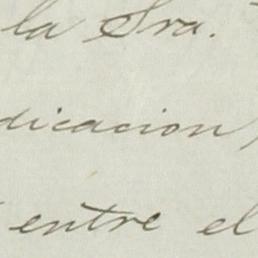 la Sra.
dicacion,
entre el